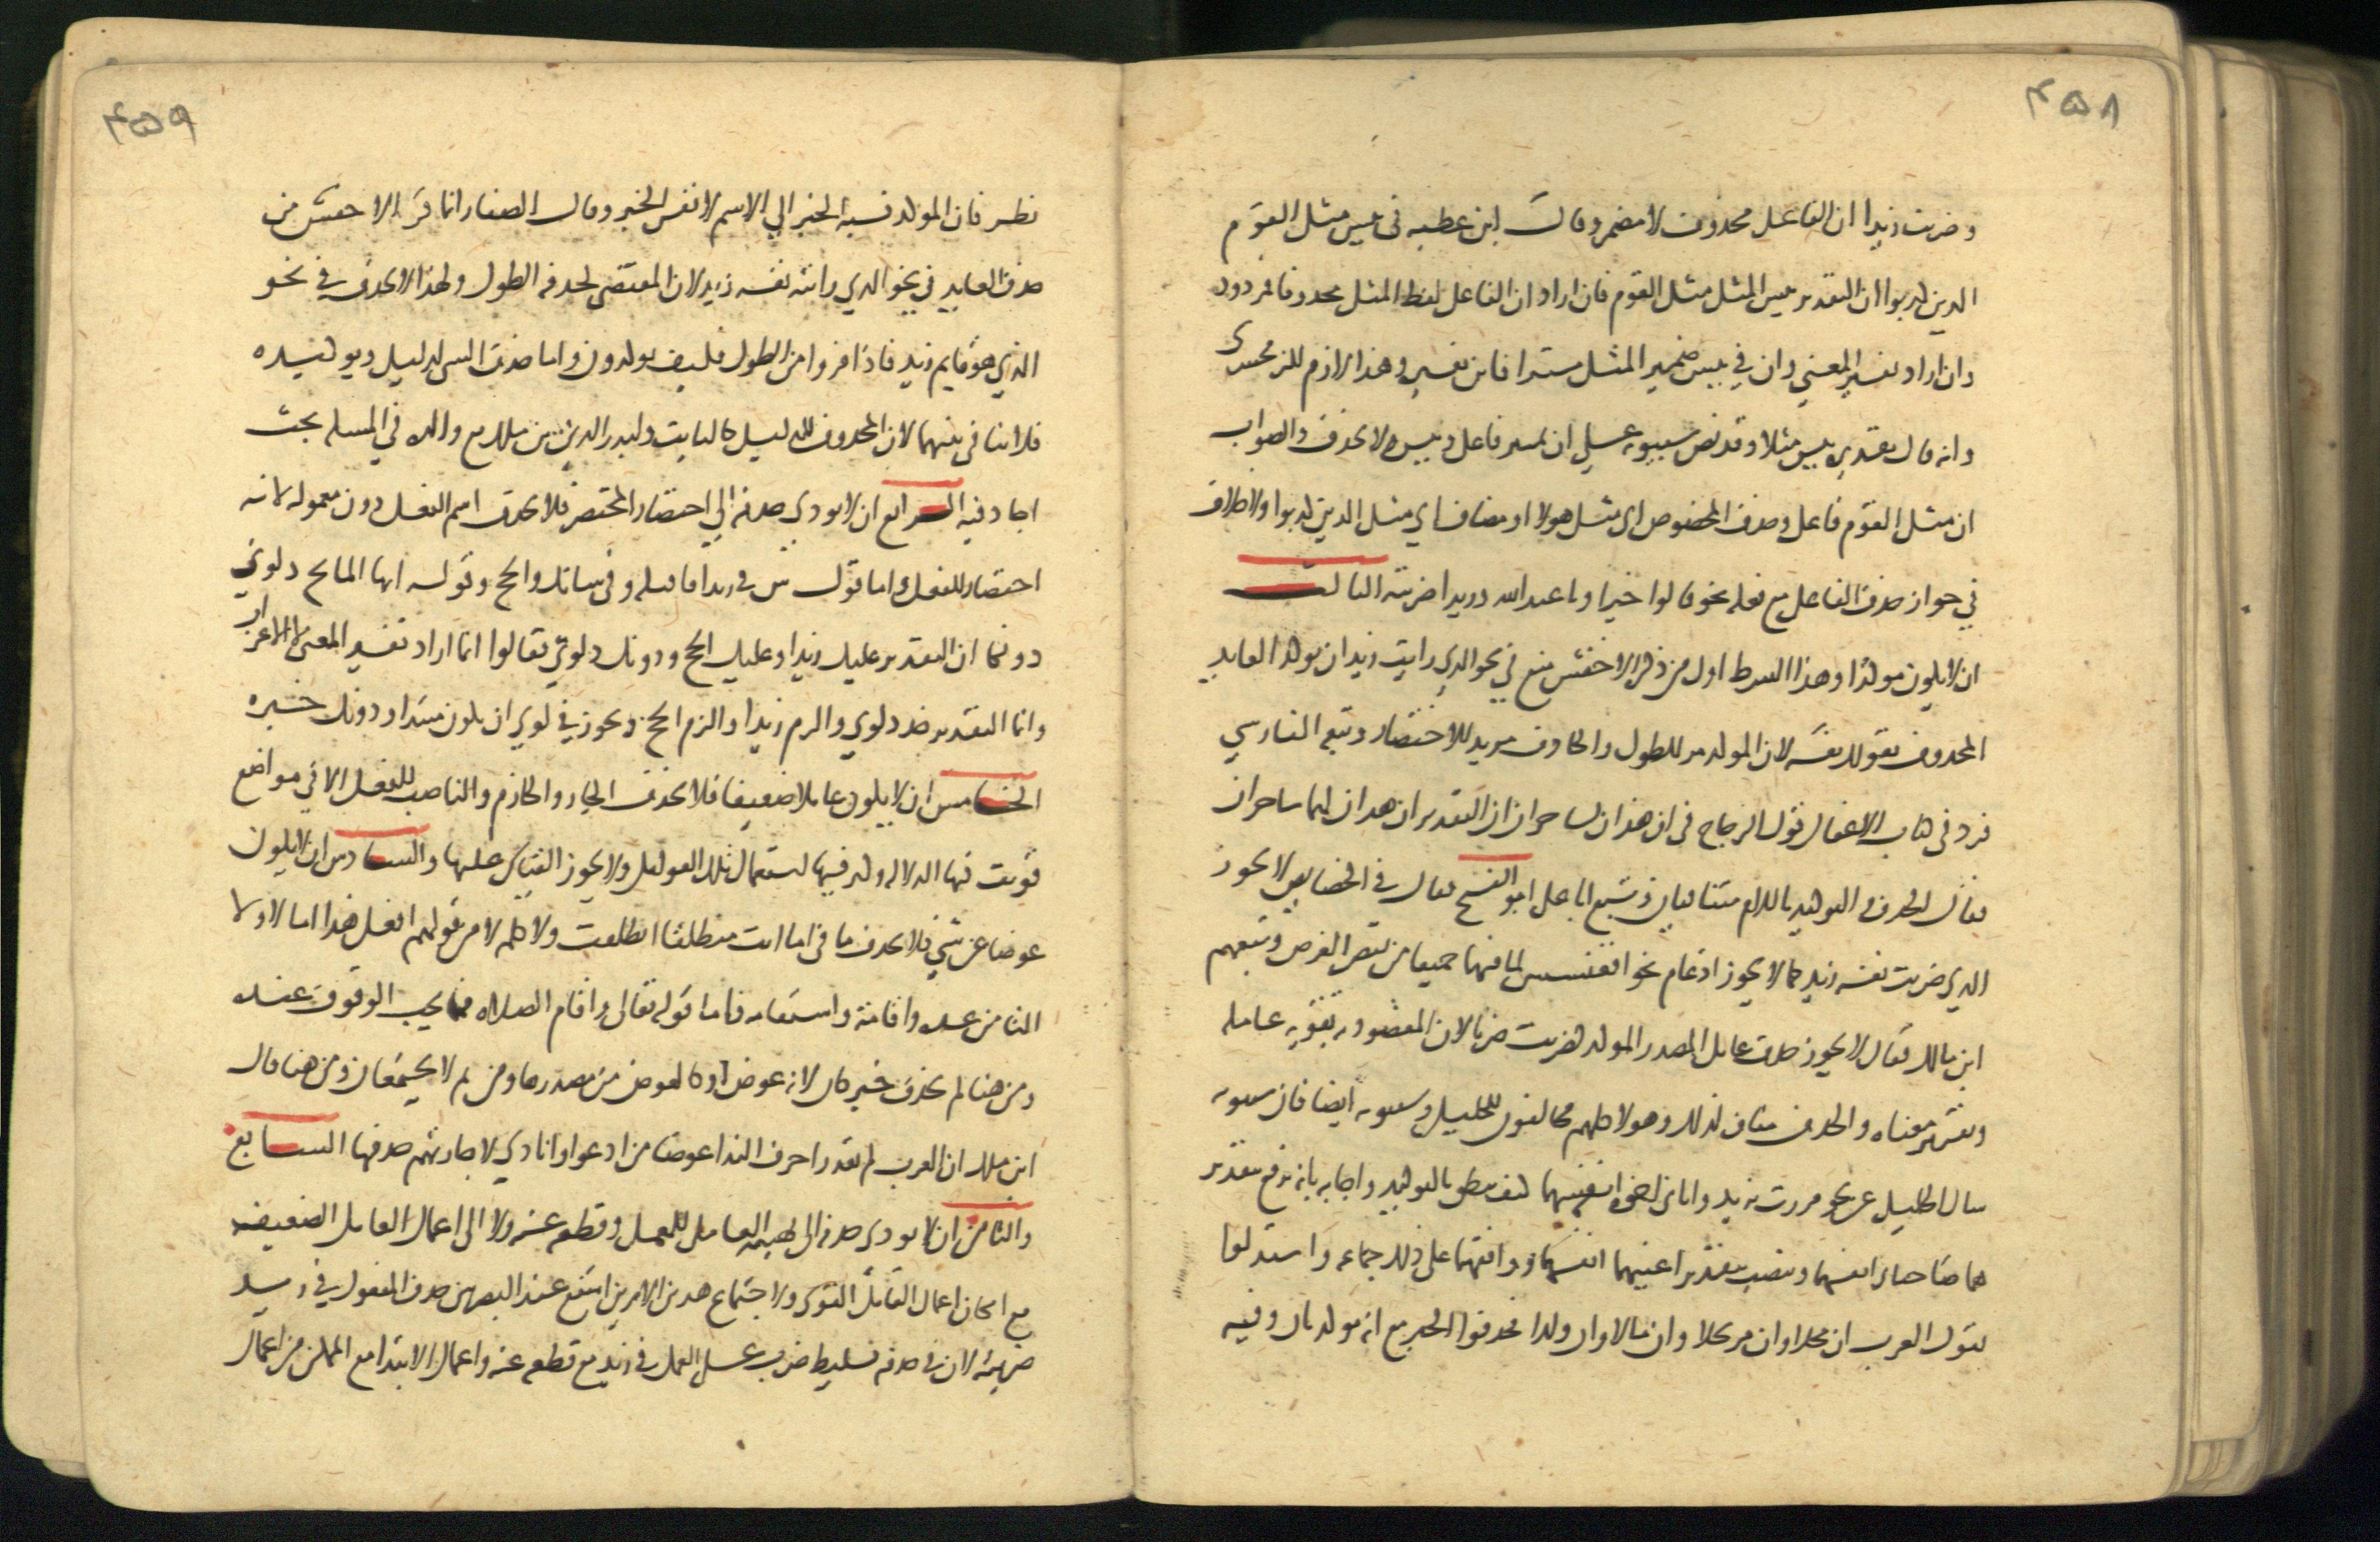 ۴۵۸
وضربت زيدا ان الفاعل محذوف لا مضمر وقال ابن عطيه في بيس مثل القوم
الذين كذبوا ان التقدير بيس المثل مثل القوم فان اراد ان الفاعل لفظ المثل محذوفا فمردود
وان اراد تفسير المعني وان في بيس ضمير المثل مستترا فاين تفسيره وهذا لازم للزمخشري
وانه قال تقديره بيس مثلا وقد نص سيبويه علي ان تمييز فاعل نعم وبيس لا يحذف والصواب
ان مثل القوم فاعل وحذف المخصوص اي مثل هولا او مضاف اي مثل الذين كذبوا ولا خلاف
في جواز حذف الفاعل مع فعله نحو قالوا خيرا ويا عبد الله وزيدا ضربته الثالث
ان لا يكون موكدا وهذا الشرط اول من ذكره الاخفش منع في نحو الذي رايت زيد ان يوكد العايد
المحذوف بقولك نفسه لان الموكد مريد للطول والحاذف مريد للاختصار وتبعه الفارسي
فرد في كتاب الاغفال قول الزجاج في ان هذان لساحران ان التقدير ان هذان لهما ساحران
فقال الحذف والتوكيد باللام متنافيان وتبع ابا علي ابو الفتح فقال في الخصايص لا يجوز
الذي ضربت نفسه زيد كما لا يجوز ادغام نحو اقعنسس لما فيهما جميعا من نقض الغرض وتبعهم
ابن مالك فقال لا يجوز حذف عامل المصدر الموكد كضربت ضربا لان المقصود به تقويه عامله
وتقرير معناه والحذف مناف لذلك وهولا كلهم مخالفون للخليل وسيبويه ايضا فان سيبويه
سال الخليل عن نحو مررت بزيد واتاني اخوه انفسهما كيف ينطق بالتوكيد واجابه بانه يرفع بتقدير
هما صاحباي انفسهما وينصب بتقدير اعنيهما انفسهما ووافقهما علي ذلك جماعه واستدلوا
بقول العرب ان محلا وان مرتحلا وان مالا وان ولدا فحذفوا الخبر مع انه موكد بان وفيه
۴۵۹
نظر فان الموكد نسبه الخبر الي الاسم لا نفس الخبر وقال الصفار انما فر الاخفش من
حذف العايد في نحو الذي رايته نفسه زيد لان المقتضي لحذفه الطول ولهذا لا يحذف في نحو
الذي هو قايم زيد فاذا فروا من الطول فكيف يوكدون واما حذف الشي لدليل وتوكيده
فلا تنافي بينهما لان المحذوف لدليل كالثابت ولبدر الدين بن مالك مع والده في المسله بحث
اجاد فيه الرابع ان لا يودي حذفه الي اختصار المختصر فلا يحذف اسم الفعل دون معموله لانه
اختصار للفعل واما قول س في زيدا فاقتله وفي شانك والحج وقوله ايها المايح دلوي
دونكا ان التقدير عليك زيدا وعليك الحج ودونك دلوي فقالوا انما اراد تفسير المعني لا الاعراب
وانما التقدير خذ دلوي والزم زيدا والزم الحج ويجوز في دلوي ان يكون مبتدا ودونك خبره
الخامس ان لا يكون عاملا ضعيفا فلا يحذف الجار والجازم والناصب للفعل الا في مواضع
قويت فيها الدلاله وكثر فيها استعمال تلك العوامل ولا يجوز القياس عليها والسادس ان لا يكون
عوضا عن شي فلا يحذف ما في اما انت منطلقا انطلقت ولا كلمه لا من قولهم افعل هذا اما لا ولا
التا من عده واقامة واستقامه فاما قوله تعالي واقام الصلاه فما يجب الوقوف عنده
ومن هنا لم يحذف خبر كان لانه عوض او كالعوض من مصدرها ومن ثم لا يجتمعان ومن هنا قال
ابن مالك ان العرب لم تقدر احرف الندا عوضا من ادعوا وانادي لاجازتهم حذفها السابع
والثامن ان لا يودي حذفه الي تهييه العامل للعمل وقطعه عنه ولا الي اعمال العامل الضعيف
مع امكان اعمال العامل القوي ولاجتماع هذين الامرين امتنع عند البصريين حذف المفعول في زيد
ضربته لان في حذفه تسليط ضرب علي العمل في زيد مع قطعه عنه واعمال الابتدا مع التمكن من اعمال